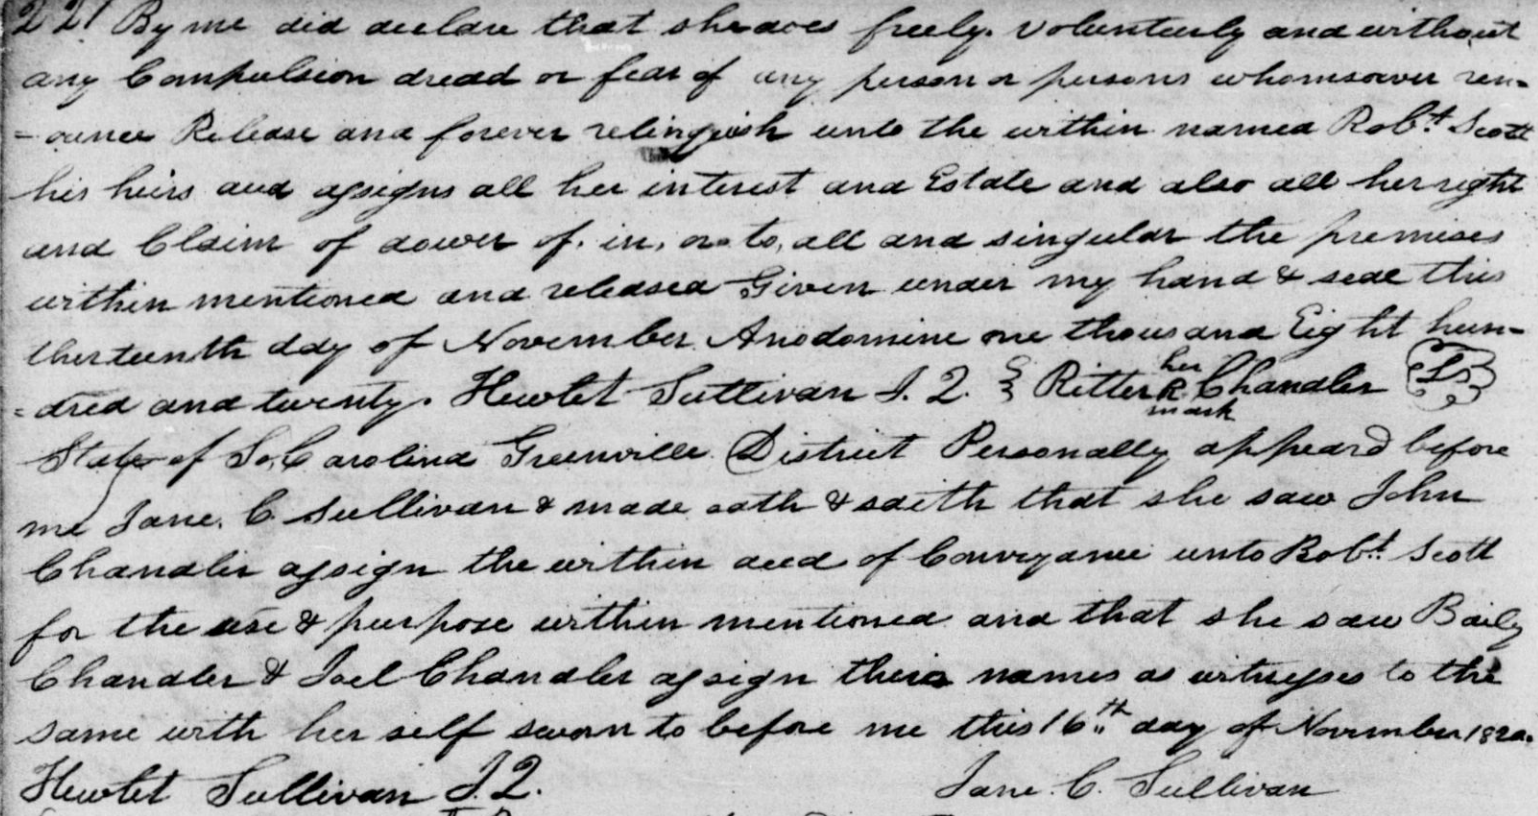 221 By me did declare that she does freely. Voluntarily and without
any Compulsion dread or fear of any person or persons whomsoever ren-
- ounce Release and forever relinquish unto the within named Robt. Scott
his heirs and assigns all her interest and Estate and also all her right
and Claim of dower of. in, or to, all and singular the premises
within mentioned and released Given under my hand & seal this
therteenth day of November Anodomine one thousand Eight hun-
= dred and twenty. Hewlet Sullivan J. Q. Ritter her R mark Chandler LS
State of So, Carolina Greenville District Personally appeard before
me Jane. C. Sullivan & made oath & saith that she saw John
Chandler assign the within deed of Conveyance unto Robt. Scott
for the use & purpose within mentioned and that she saw Baily
Chandler & Joel Chandler assign their names as witnesses to the
same with her self sworn to before me this 16th. day of November 1820.
Hewlet Sullivan J Q. Jane. C. Sullivan